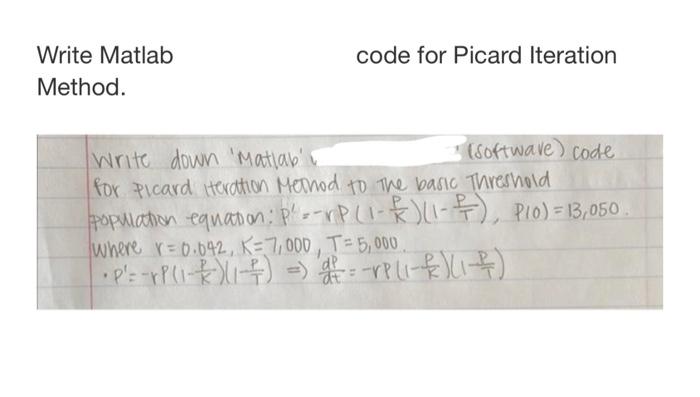 Write Matlab code for Picard Iteration
Method.
Write down 'Matlab' (software) code
for Picard Iteration Method to The basic Threshold
population equation: P' = -rP(1-P/K)(1-P/T), P(0) = 13,050.
where r = 0.042, K = 7,000, T = 5,000.
• P' = -rP(1-P/K)(1-P/T) => dP/dt = -rP(1-P/K)(1-P/T)